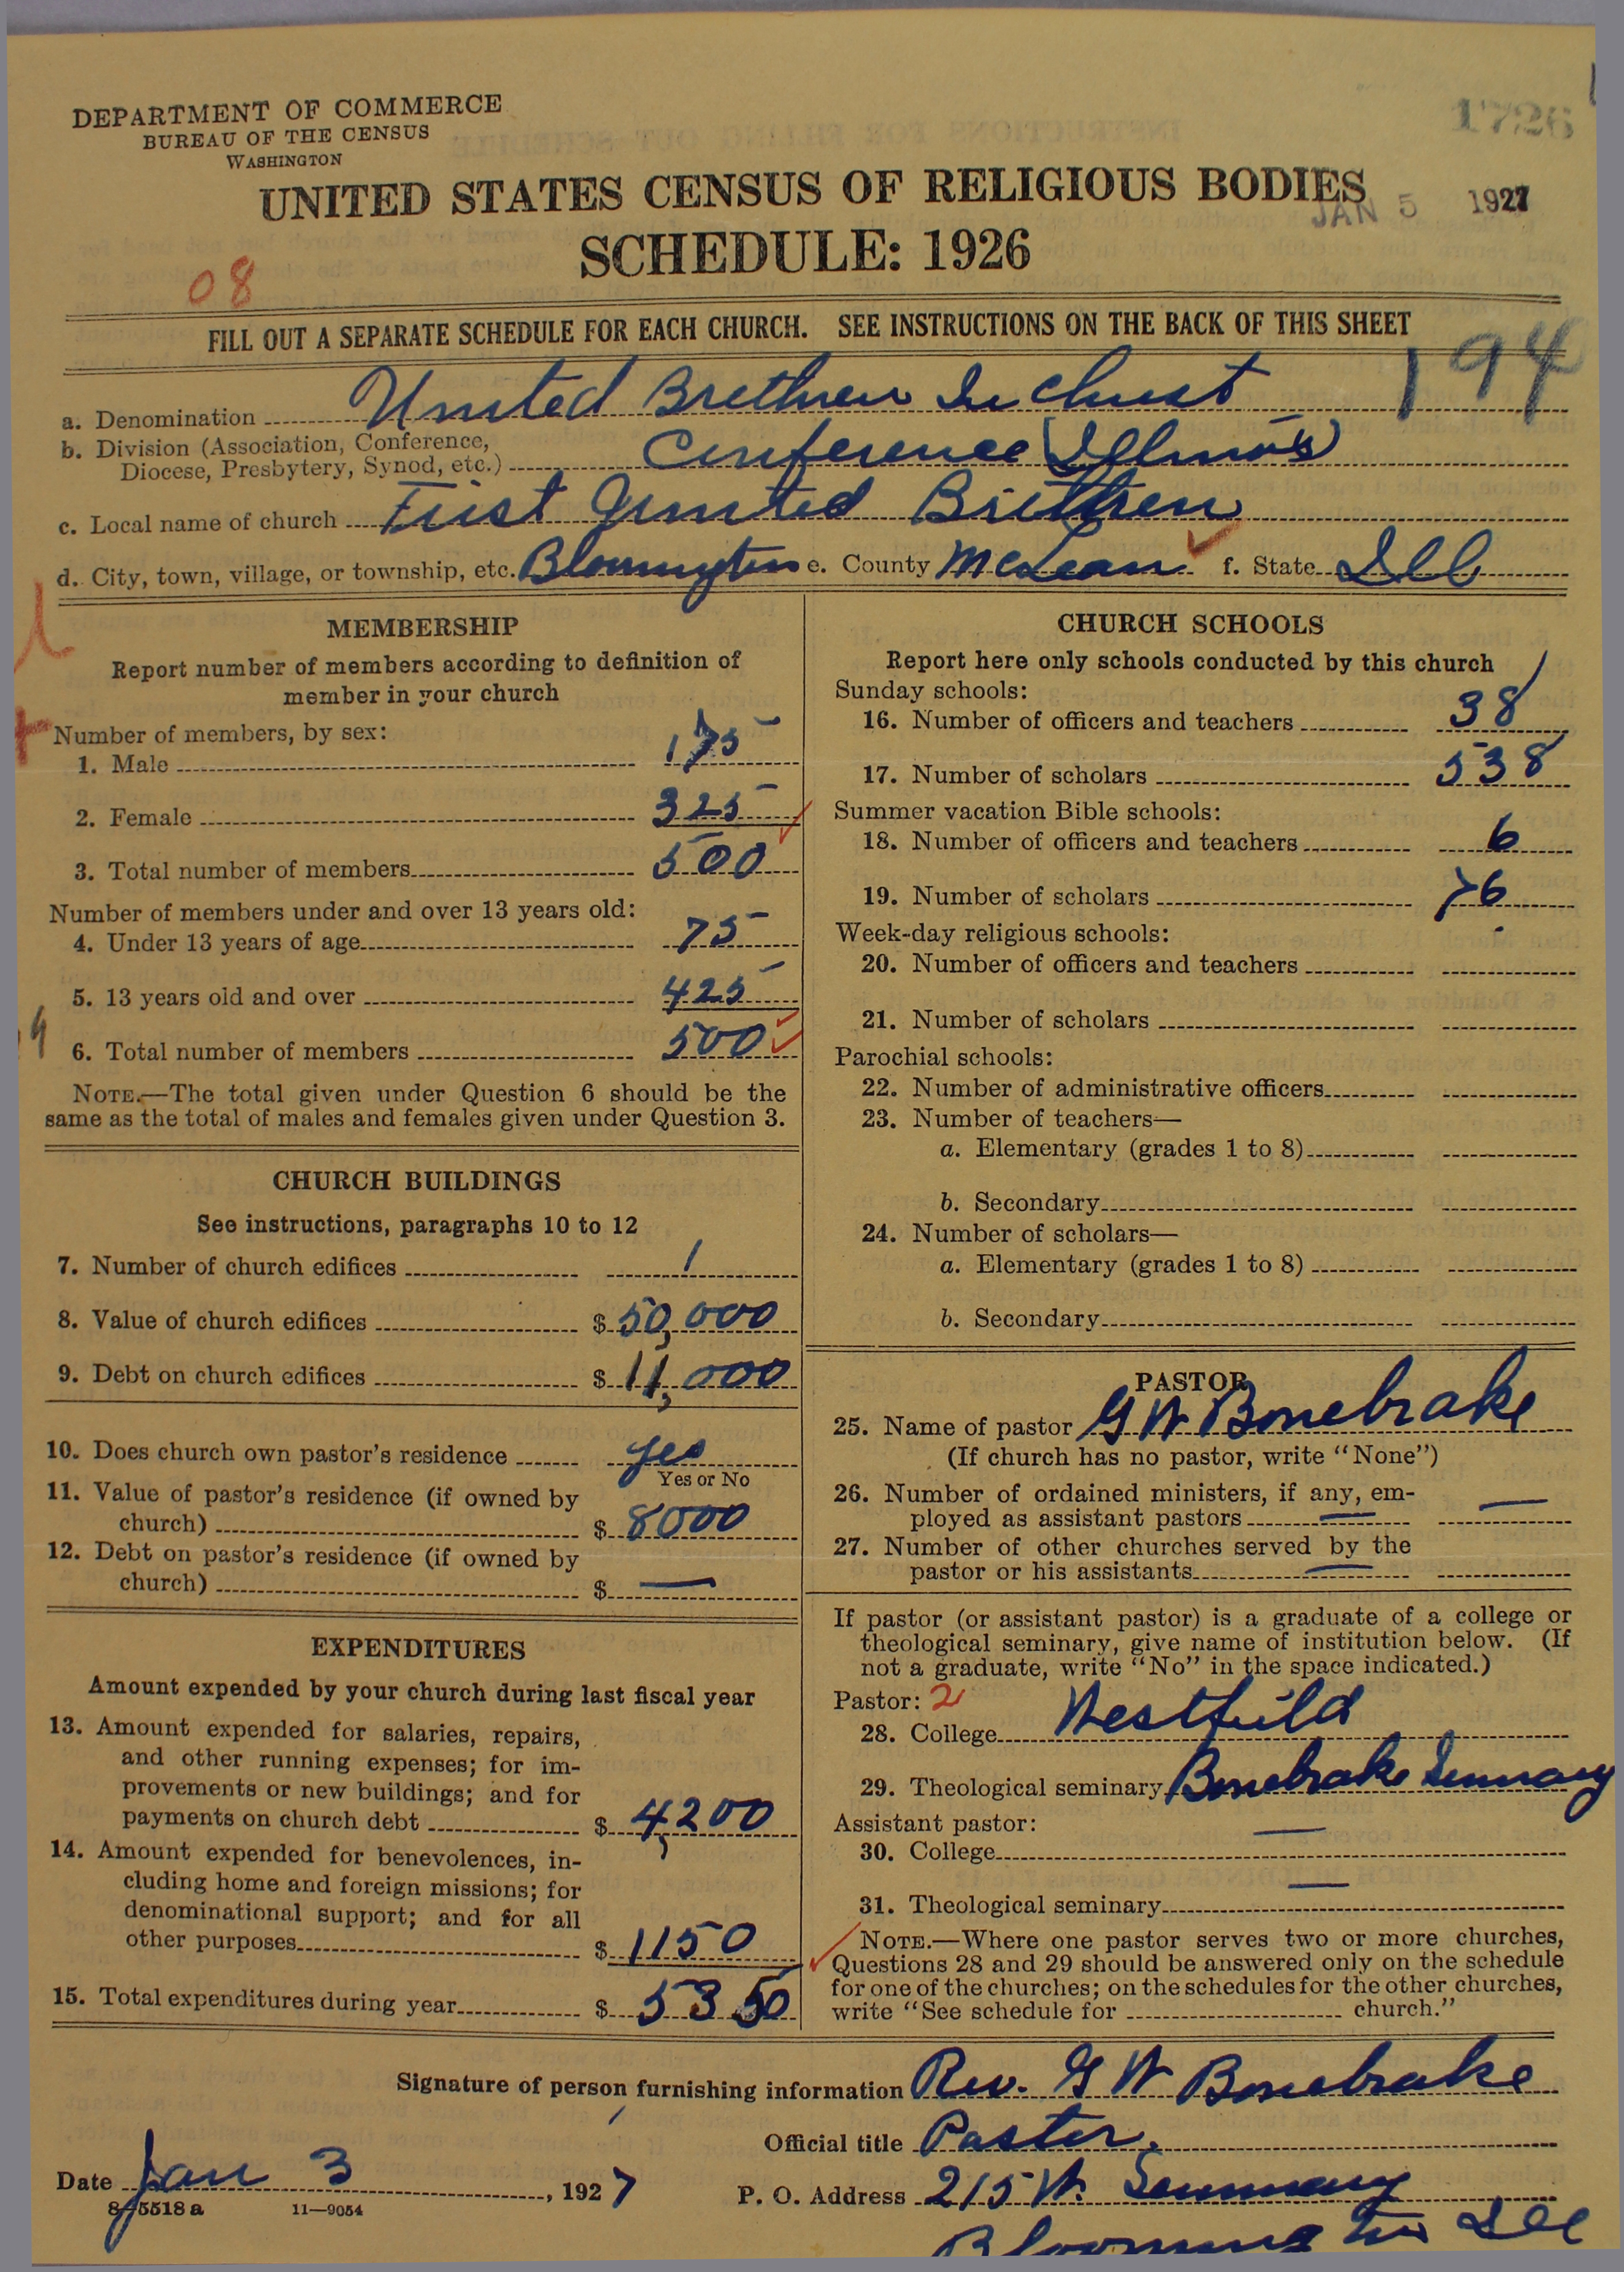 DEPARTMENT OF COMMERCE
BUREAU OF THE CENSUS
WASHINGTON
1726
UNITED STATES CENSUS OF RELIGIOUS BODIES
JAN 5 1927
SCHEDULE: 1926
08
FILL OUT A SEPARATE SCHEDULE FOR EACH CHURCH. SEE INSTRUCTIONS ON THE BACK OF THIS SHEET
194
a. Denomination United Brethren In Christ
b. Division (Association, Conference,
Diocese, Presbytery, Synod, etc.) Conference (Illinois)
c. Local name of church First United Brethren
d. City, town, village, or township, etc. Bloomington e. County McLean f. State Ill
MEMBERSHIP
Report number of members according to definition of
member in your church
Number of members, by sex:
1. Male 175
2. Female 325
3. Total number of members 500
Number of members under and over 13 years old:
4. Under 13 years of age 75
5. 13 years old and over 425
6. Total number of members 500
NOTE.—The total given under Question 6 should be the
same as the total of males and females given under Question 3.
CHURCH BUILDINGS
See instructions, paragraphs 10 to 12
7. Number of church edifices 1
8. Value of church edifices $ 50,000
9. Debt on church edifices $ 11,000
10. Does church own pastor's residence yes
Yes or No
11. Value of pastor's residence (if owned by
church) $ 8000
12. Debt on pastor's residence (if owned by
church) $ —
EXPENDITURES
Amount expended by your church during last fiscal year
13. Amount expended for salaries, repairs,
and other running expenses; for im-
provements or new buildings; and for
payments on church debt $ 4,200
14. Amount expended for benevolences, in-
cluding home and foreign missions; for
denominational support; and for all
other purposes $ 1150
15. Total expenditures during year $ 5350
CHURCH SCHOOLS
Report here only schools conducted by this church
Sunday schools:
16. Number of officers and teachers 38
17. Number of scholars 538
Summer vacation Bible schools:
18. Number of officers and teachers 6
19. Number of scholars 76
Week-day religious schools:
20. Number of officers and teachers
21. Number of scholars
Parochial schools:
22. Number of administrative officers
23. Number of teachers—
a. Elementary (grades 1 to 8)
b. Secondary
24. Number of scholars—
a. Elementary (grades 1 to 8)
b. Secondary
PASTOR
25. Name of pastor G W Bonebrake
(If church has no pastor, write "None")
26. Number of ordained ministers, if any, em-
ployed as assistant pastors — —
27. Number of other churches served by the
pastor or his assistants —
If pastor (or assistant pastor) is a graduate of a college or
theological seminary, give name of institution below. (If
not a graduate, write "No" in the space indicated.)
Pastor: 2
28. College Westfield
29. Theological seminary Bonebrake Seminary
Assistant pastor:
30. College —
31. Theological seminary —
NOTE.—Where one pastor serves two or more churches,
Questions 28 and 29 should be answered only on the schedule
for one of the churches; on the schedules for the other churches,
write "See schedule for church."
Signature of person furnishing information Rev. G W Bonebrake
Official title Pastor.
Date Jan 3, 1927 P. O. Address 215 W. Seminary
8-5518 a 11—9054
Bloomington Ill